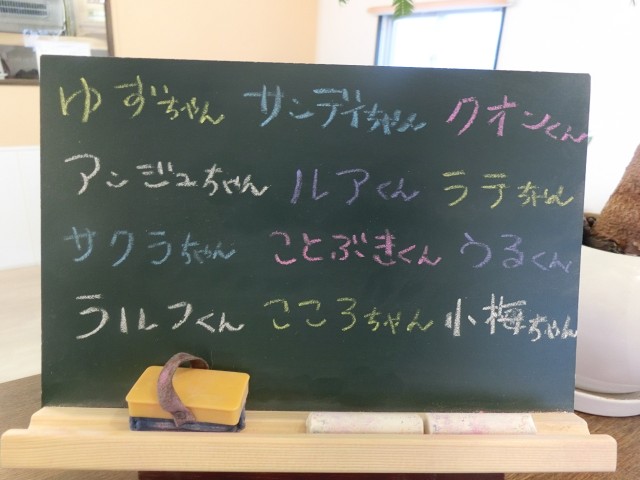 ゆずちゃん サンディちゃん クオンくん
アンジュちゃん ルアくん ラテちゃん
サクラちゃん ことぶきくん うるくん
ラルフくん こころちゃん 小梅ちゃん